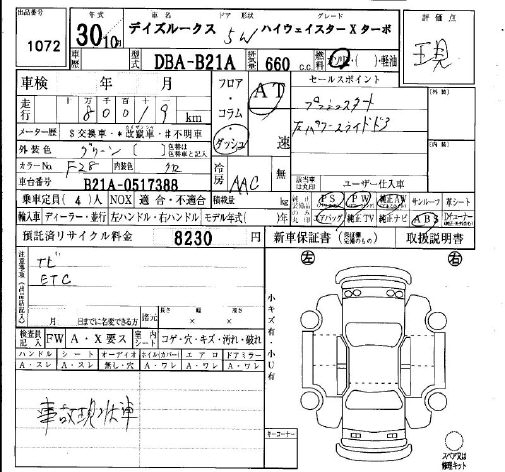 出品番号 1072
年式 30年10月
車名 ドア 形状 グレード
デイズルークス 5W ハイウェイスターXターボ
評価点 現
車歴 型式 DBA-B21A 排気量 660 c.c. 燃料 ガソリン・( )・軽油
車検 年 月
フロア・コラム・ダッシュ AT 速
セールスポイント
プッシュスタート
左パワースライドドア
走行 十万千百十 80019 km
メーター歴 S交換車・*改竄車・#不明車
外装色 グリーン ( ) 色替は色替車と記入
カラーNo. F28 内装色 クロ
冷房 AAC 無
車台番号 B21A-0517388
該当車は丸印 ユーザー仕入車
乗車定員 ( 4 ) 人 NOX 適合・不適合 積載量 kg
PS PW 純正AW サンルーフ 革シート
輸入車 ディーラー・並行 左ハンドル・右ハンドル モデル年式( )年
エアバッグ 純正TV 純正ナビ ABS
預託済リサイクル料金 8230 円
新車保証書 取扱説明書
注意事項
TV
ETC
月 日までに名変できる方
諸元 長さ 幅 高さ × ×
検査員記入 FW A・X要ス 室内シート コゲ・穴・キズ・汚れ・破れ
ハンドル シート オーディオ ホイル(カバー) エアロ ドアミラー
A・スレ A・スレ 無し・穴 A・ワレ A・ワレ A・ワレ
事故現状車
左 右
小キズ有・小U有
キーコーナー
スペアタイヤ 修理キット